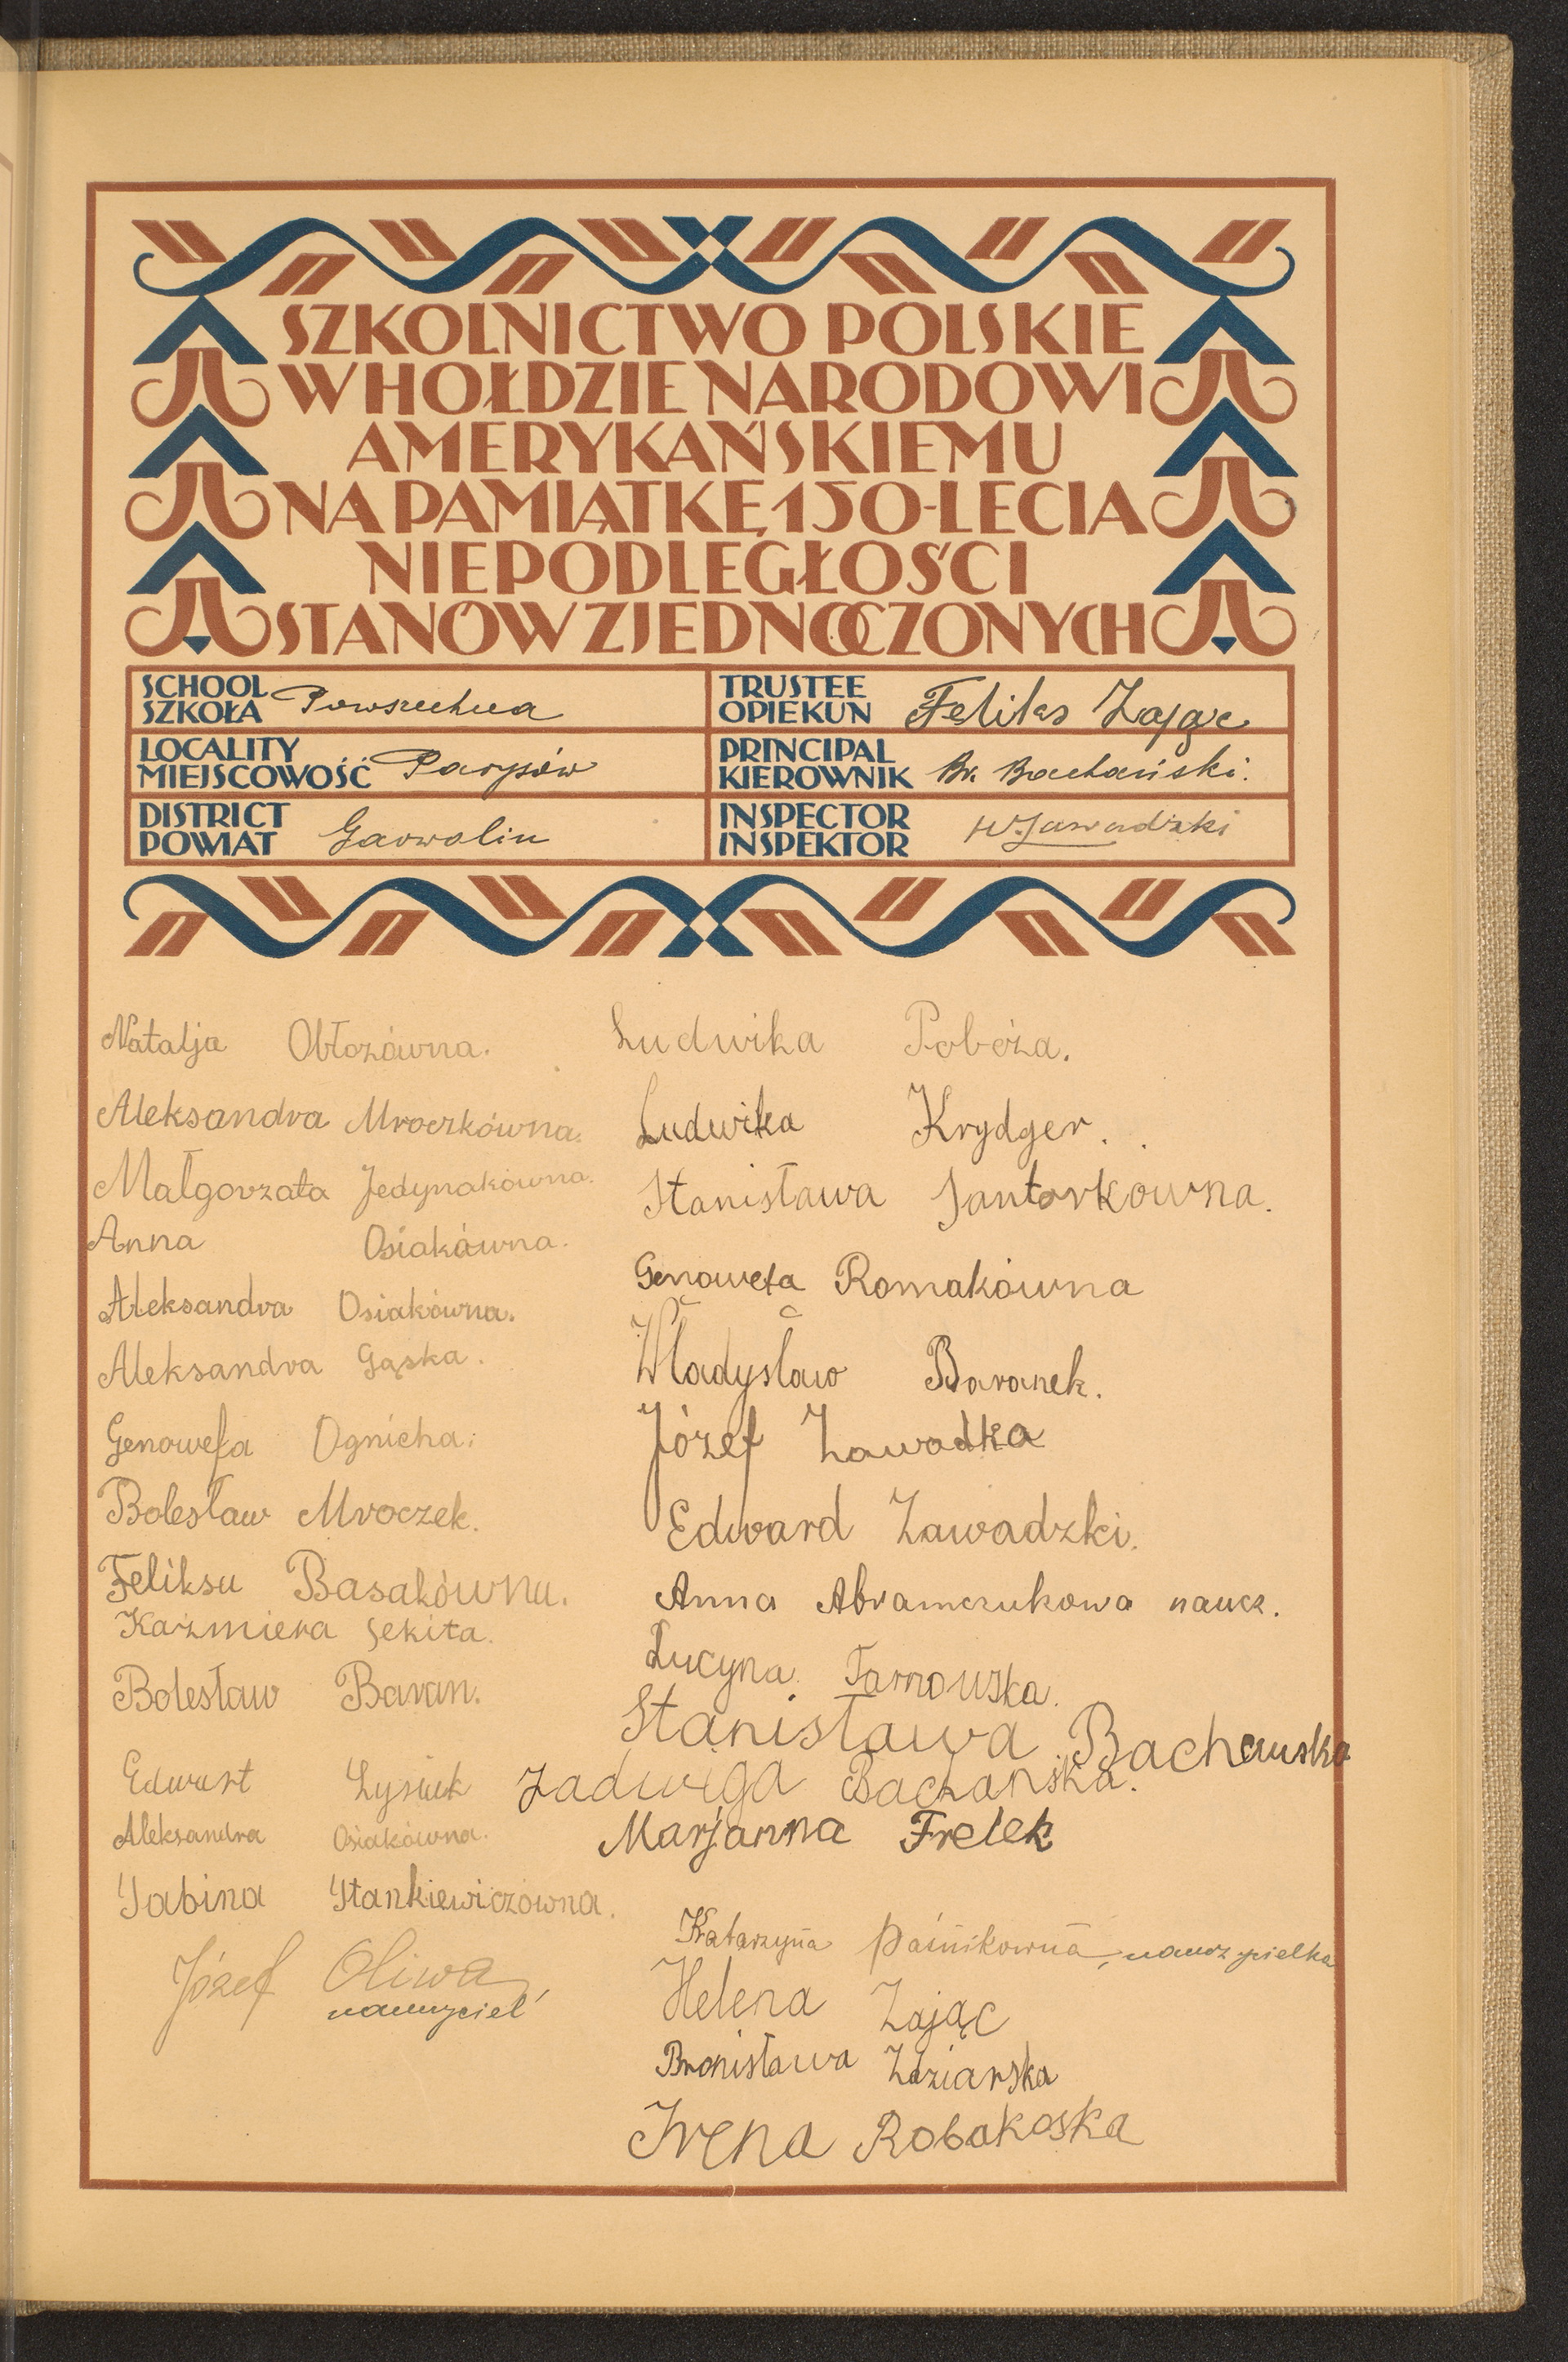 SZKOLNICTWO POLSKIE
W HOŁDZIE NARODOWI
AMERYKAŃSKIEMU
NA PAMIĄTKĘ 150-LECIA
NIEPODLEGŁOŚCI
STANÓW ZJEDNOCZONYCH
SCHOOL
SZKOŁA Powszechna
TRUSTEE
OPIEKUN Feliks Zając
LOCALITY
MIEJSCOWOŚĆ Parysów
PRINCIPAL
KIEROWNIK Br. Bachański.
DISTRICT
POWIAT Garwolin
INSPECTOR
INSPEKTOR W. Zawadzki
Natalja Obłozówna.
Aleksandra Mroczkówna.
Małgorzata Jedynakówna.
Anna Osiakówna.
Aleksandra Osiakówna.
Aleksandra Gąska.
Genowefa Ognicha.
Bolesław Mroczek.
Feliksa Basakówna.
Kaźmiera Sekita.
Bolesław Baran.
Edwart Łysiak
Aleksandra Osiakówna.
Sabina Stankiewiczówna.
Józef Oliwa
nauczyciel
Ludwika Pobóża.
Ludwika Krydger.
Stanisława Santorkowna.
Genowefa Romakówna
Władysław Baranek.
Józef Zawadka
Edward Zawadzki.
Anna Abramczukowa naucz.
Lucyna Tarnowska.
Stanisława Bachanska
Jadwiga Bachańska.
Marjanna Frelek
Katarzyna Paśnikowna, nauczycielka
Helena Zając
Bronisława Zdziarska
Irena Robakoska